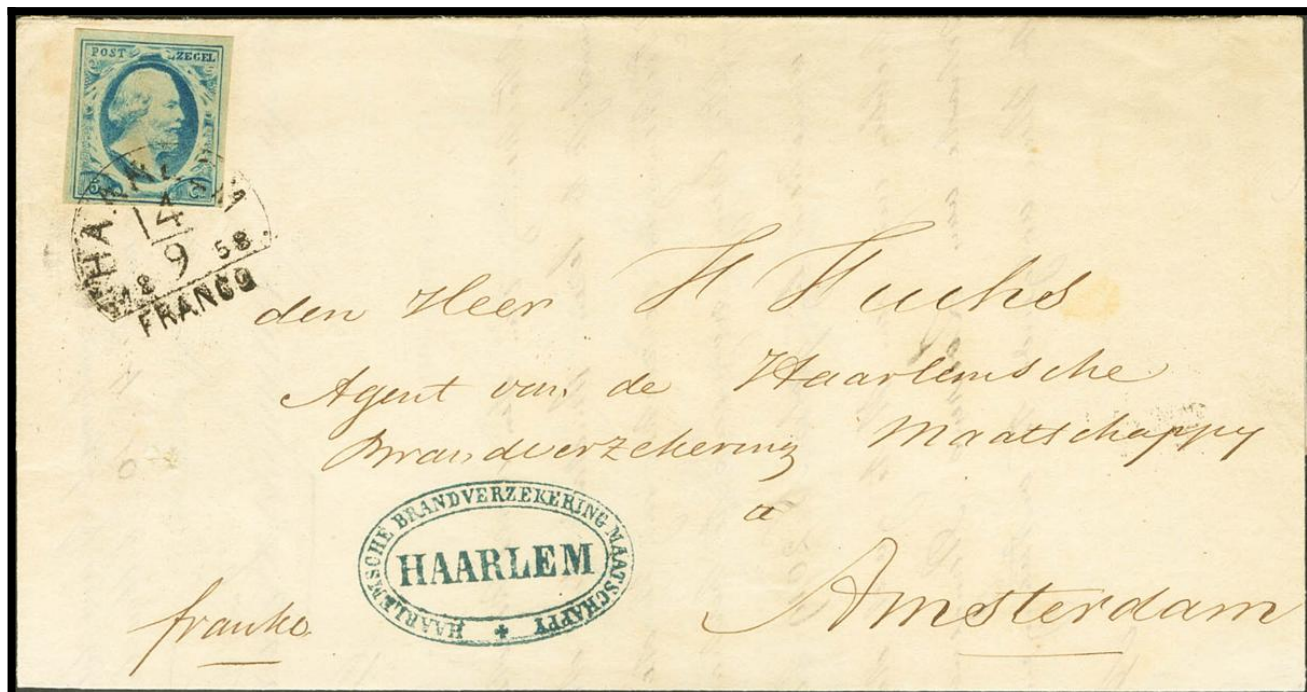 POST ZEGEL
5 5
HAARLEM
14
9
18 58
FRANCO
den Heer H Fuchs
Agent van de Haarlemsche
Brandverzekering Maatschappy
a
Amsterdam
HAARLEMSCHE BRANDVERZEKERING MAATSCHAPPY
HAARLEM
franko